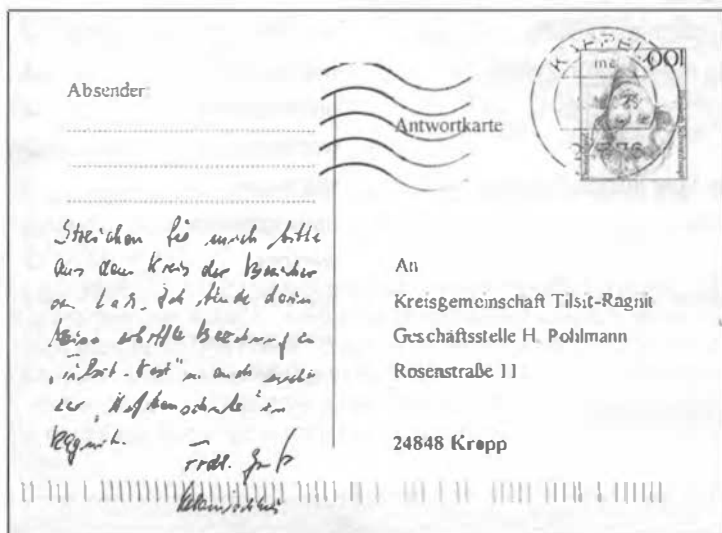 KAPPEL
100
Absender:
Antwortkarte
Streichen Sie mich bitte
aus dem Kreis der Bezieher
von LaR. Ich finde darin
keine erhoffte Beziehung zu
"Tilsit-" auch
der "
Ragnit.
Frdl. Gruß
An
Kreisgemeinschaft Tilsit-Ragnit
Geschäftsstelle H. Pohlmann
Rosenstraße 11
24848 Kropp